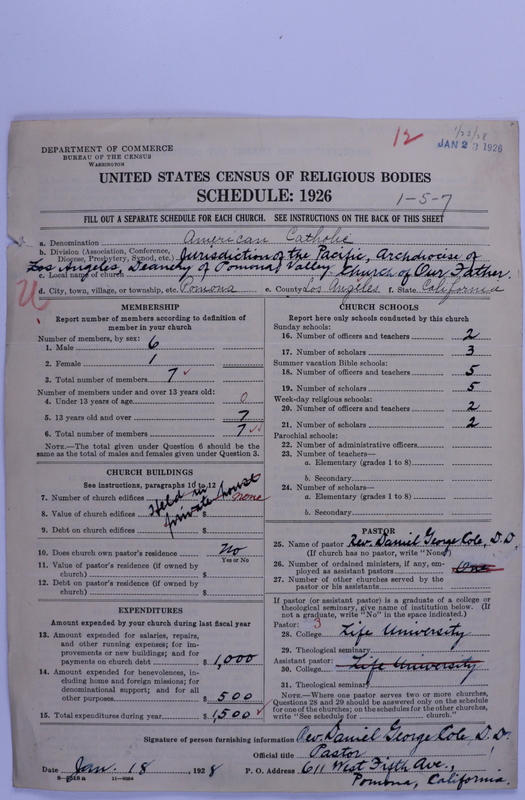 12
1/23/28
JAN 23 1926
DEPARTMENT OF COMMERCE
BUREAU OF THE CENSUS
WASHINGTON
UNITED STATES CENSUS OF RELIGIOUS BODIES
SCHEDULE: 1926
1-5-7
FILL OUT A SEPARATE SCHEDULE FOR EACH CHURCH. SEE INSTRUCTIONS ON THE BACK OF THIS SHEET
a. Denomination American Catholic
b. Division (Association, Conference, Diocese, Presbytery, Synod, etc.) Jurisdiction of the Pacific, Archdiocese of
Los Angeles, Deanery of Pomona Valley
c. Local name of church Church of Our Father.
d. City, town, village, or township, etc. Pomona e. County Los Angeles f. State California
MEMBERSHIP
Report number of members according to definition of
member in your church
Number of members, by sex:
1. Male 6
2. Female 1
3. Total number of members 7
Number of members under and over 13 years old:
4. Under 13 years of age 0
5. 13 years old and over 7
6. Total number of members 7
NOTE.—The total given under Question 6 should be the
same as the total of males and females given under Question 3.
CHURCH BUILDINGS
See instructions, paragraphs 10 to 12
7. Number of church edifices none
Held in
private
8. Value of church edifices $
9. Debt on church edifices $
10. Does church own pastor's residence No
Yes or No
11. Value of pastor's residence (if owned by
church) $
12. Debt on pastor's residence (if owned by
church) $
EXPENDITURES
Amount expended by your church during last fiscal year
13. Amount expended for salaries, repairs,
and other running expenses; for im-
provements or new buildings; and for
payments on church debt $ 1,000
14. Amount expended for benevolences, in-
cluding home and foreign missions; for
denominational support; and for all
other purposes $ 500
15. Total expenditures during year $ 1,500
CHURCH SCHOOLS
Report here only schools conducted by this church
Sunday schools:
16. Number of officers and teachers 2
17. Number of scholars 3
Summer vacation Bible schools:
18. Number of officers and teachers 5
19. Number of scholars 5
Week-day religious schools:
20. Number of officers and teachers 2
21. Number of scholars 2
Parochial schools:
22. Number of administrative officers
23. Number of teachers—
a. Elementary (grades 1 to 8)
b. Secondary
24. Number of scholars—
a. Elementary (grades 1 to 8)
b. Secondary
PASTOR
25. Name of pastor Rev. Daniel George Cole, D.D.
(If church has no pastor, write "None")
26. Number of ordained ministers, if any, em-
ployed as assistant pastors One
27. Number of other churches served by the
pastor or his assistants
If pastor (or assistant pastor) is a graduate of a college or
theological seminary, give name of institution below. (If
not a graduate, write "No" in the space indicated.)
Pastor: 3
28. College Life University
29. Theological seminary
Assistant pastor:
30. College Life University
31. Theological seminary
NOTE.—Where one pastor serves two or more churches,
Questions 28 and 29 should be answered only on the schedule
for one of the churches; on the schedules for the other churches,
write "See schedule for church."
Signature of person furnishing information Rev. Daniel George Cole, D.D.
Official title Pastor
Date Jan. 18, 1928 P. O. Address 611 West Fifth Ave.,
Pomona, California.